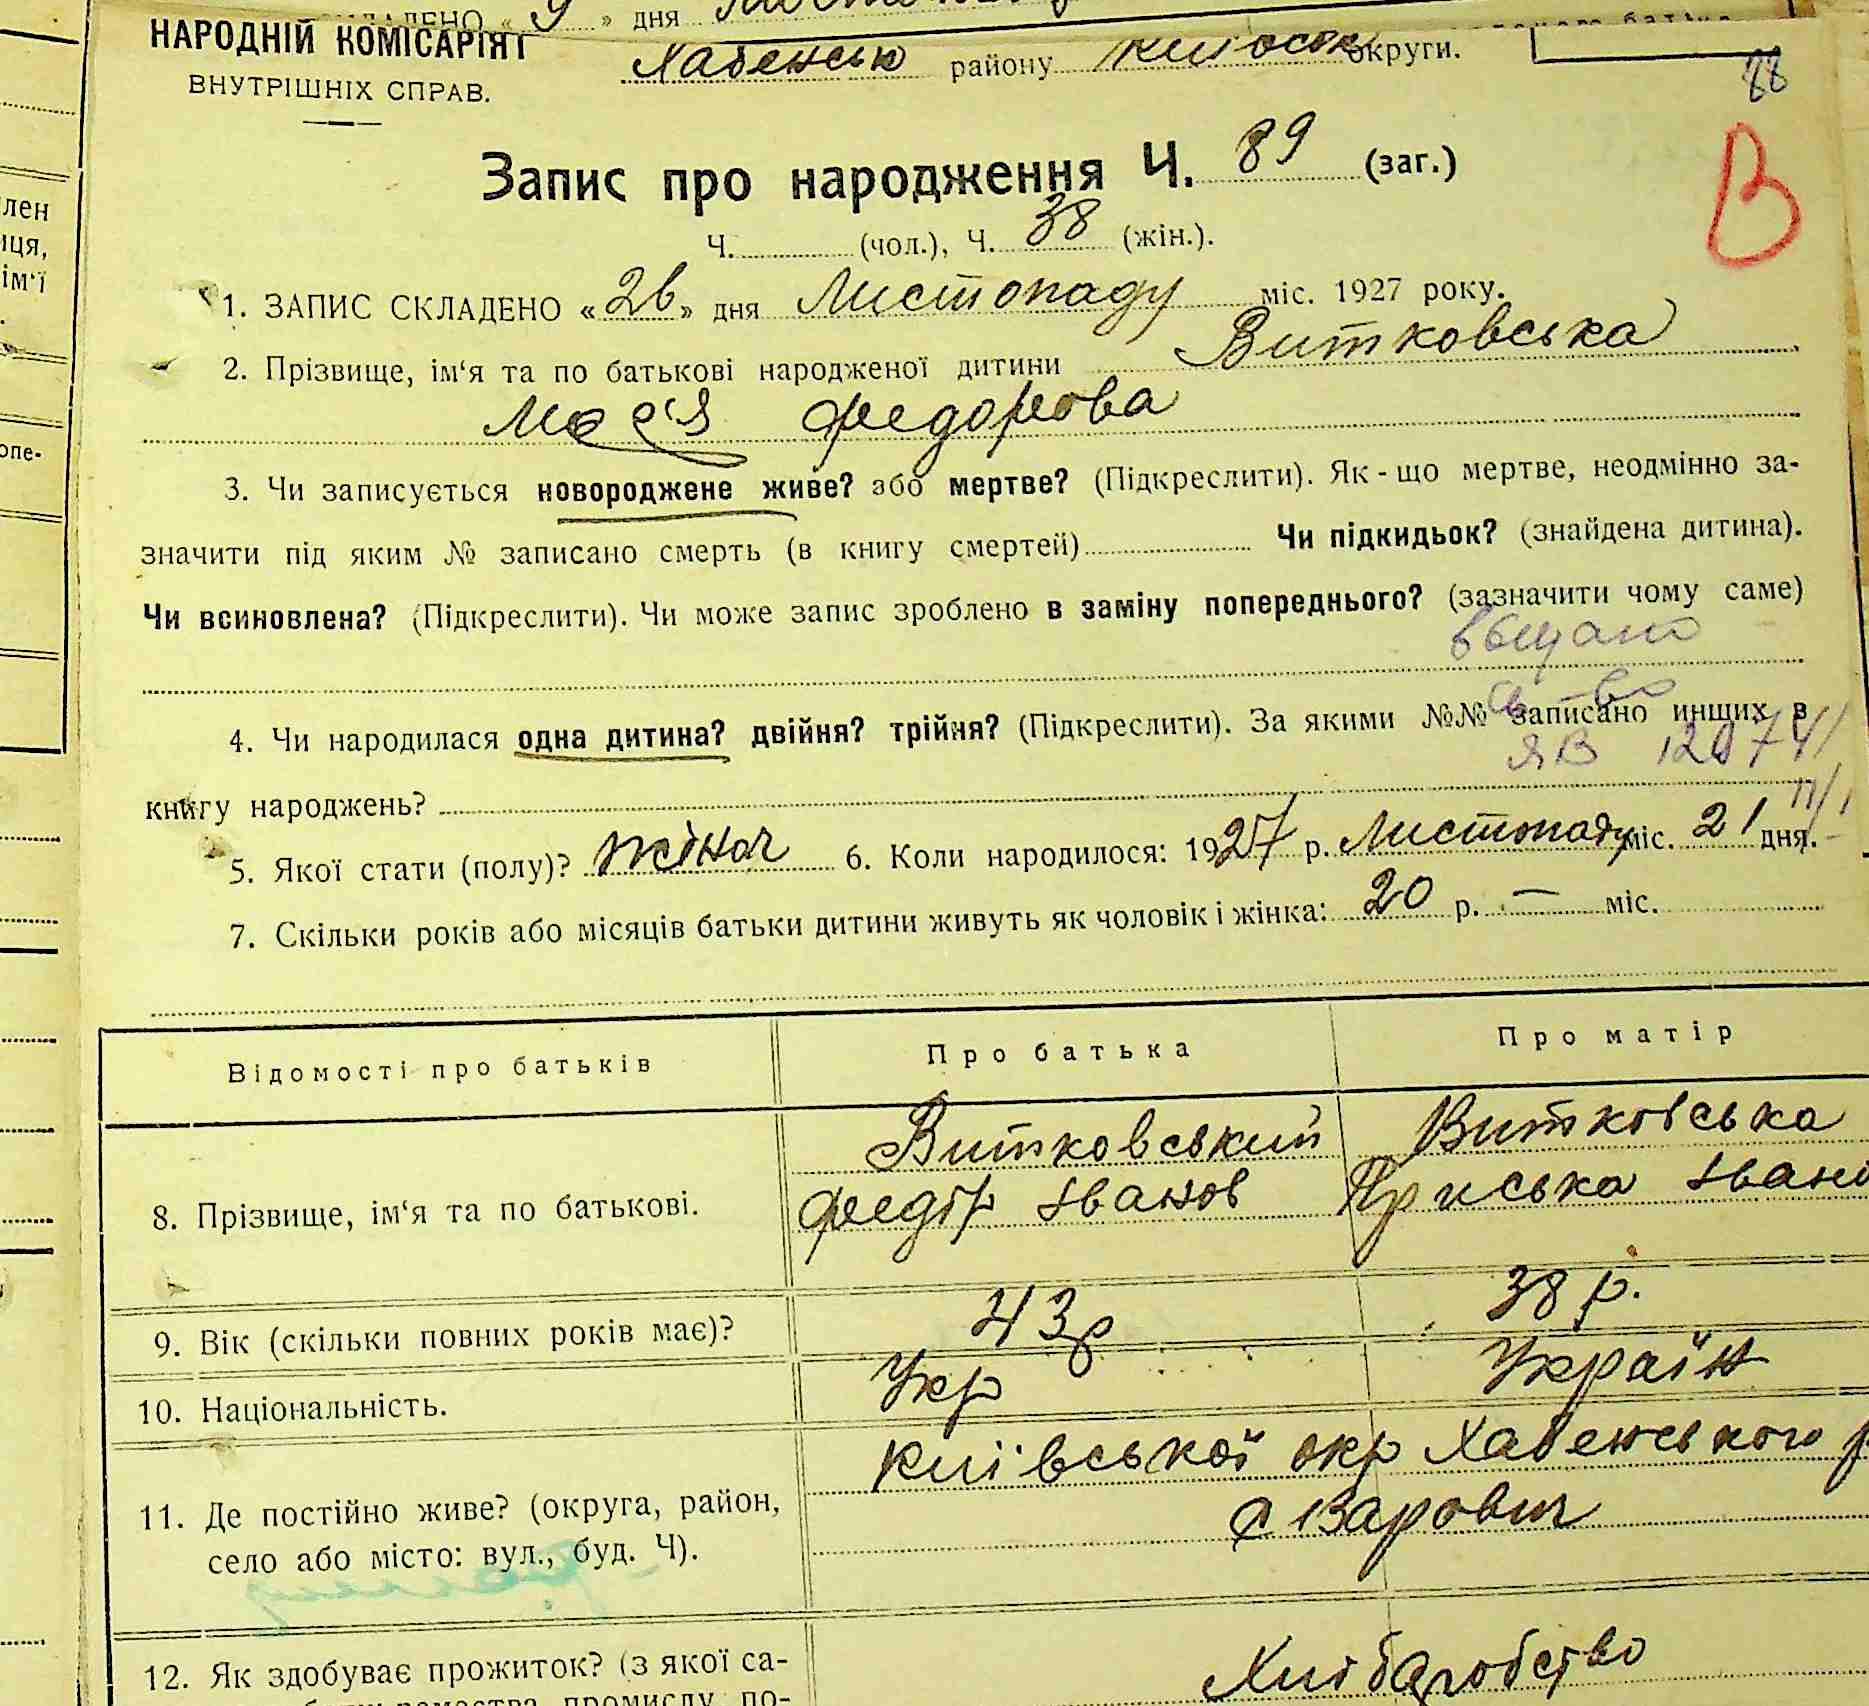 « 9 » дня
НАРОДНІЙ КОМІСАРІЯТ
ВНУТРІШНІХ СПРАВ.
Хабенськ району округи.
88
Запис про народження Ч. 89 (заг.)
В
Ч. (чол.), Ч. 38 (жін.).
1. ЗАПИС СКЛАДЕНО «26» дня Листопаду міс. 1927 року.
2. Прізвище, ім‘я та по батькові народженої дитини Витковська
Федорова
3. Чи записується новороджене живе? або мертве? (Підкреслити). Як-що мертве, неодмінно за-
значити під яким № записано смерть (в книгу смертей) Чи підкидьок? (знайдена дитина).
Чи всиновлена? (Підкреслити). Чи може запис зроблено в заміну попереднього? (зазначити чому саме)
4. Чи народилася одна дитина? двійня? трійня? (Підкреслити). За якими №№ записано инших в
ЯВ
книгу народжень?
5. Якої стати (полу)? жіноч 6. Коли народилося: 1927 р. Листопаду міс. 21 дня.
7. Скільки років або місяців батьки дитини живуть як чоловік і жінка: 20 р. — міс.
Відомості про батьків Про батька Про матір
Витковський Витковська
8. Прізвище, ім‘я та по батькові. Федір Іванов Приська Івано
9. Вік (скільки повних років має)? 43р 38 р.
10. Національність. Укр Україн
Київської окр Хабенського р
11. Де постійно живе? (округа, район, с Варовичі
село або місто: вул., буд. Ч).
12. Як здобуває прожиток? (з якої са- Хліборобство
лен
иця,
ім‘ї
опе-